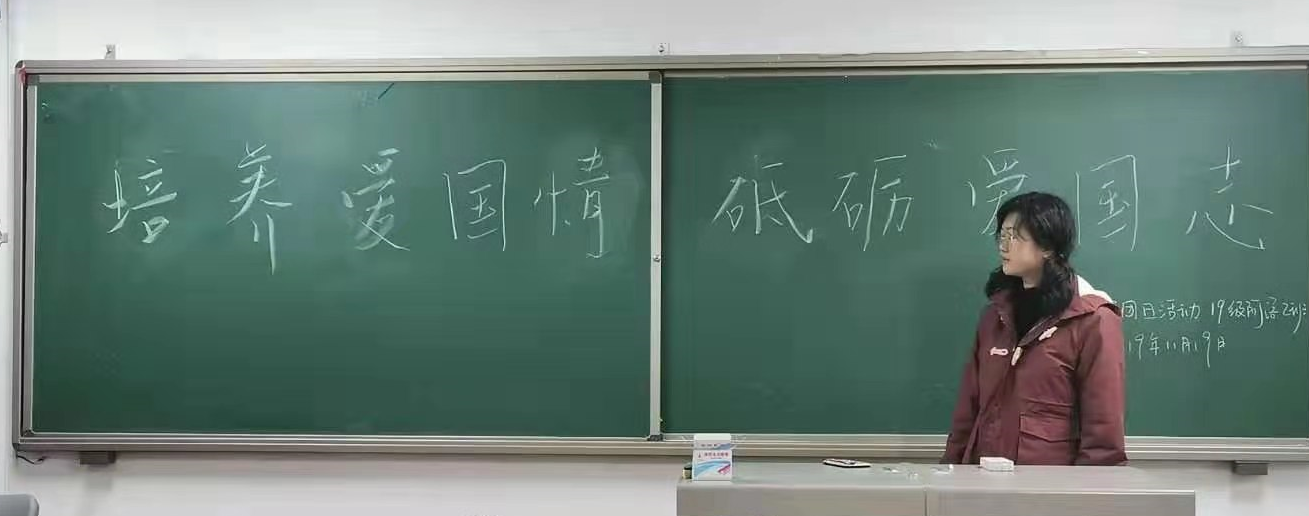 培养爱国情 砥砺爱国志
团日活动 19级阿语2班
19年11月19日